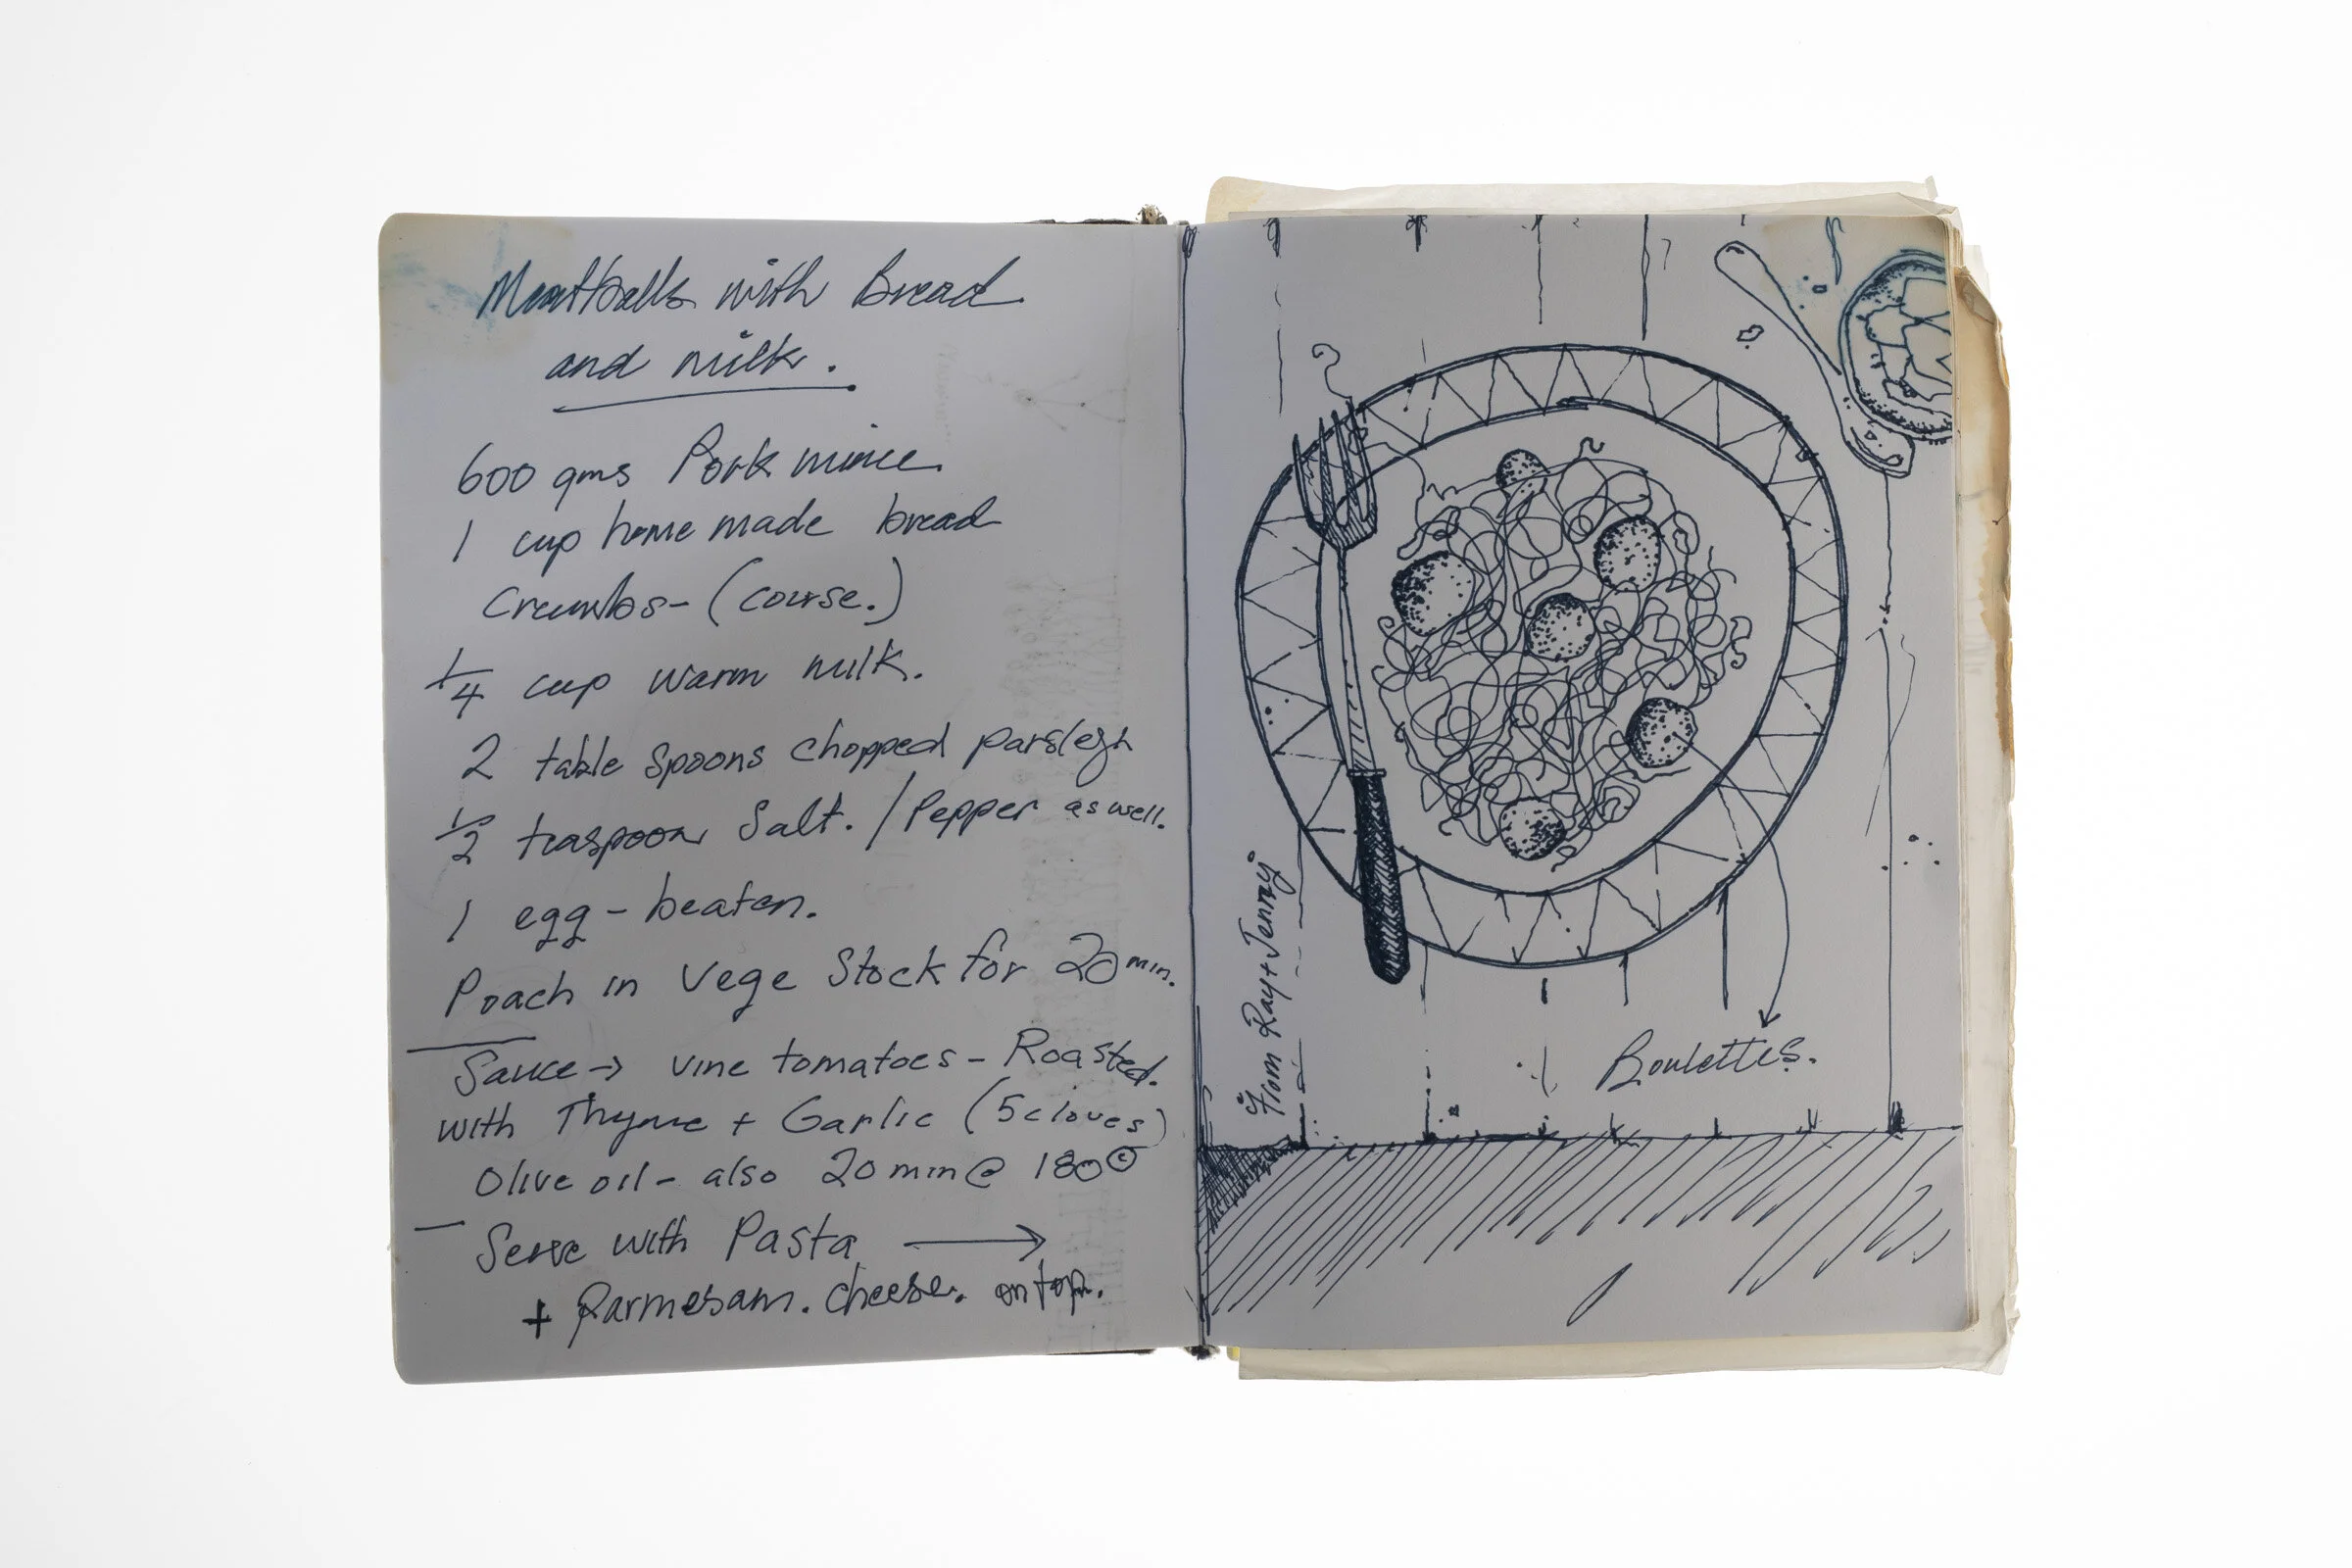 Meatballs with Bread
and milk.
600 gms Pork mince.
1 cup home made bread
Crumbs - (course.)
1/4 cup warm milk.
2 table spoons chopped parsley
1/2 teaspoon Salt. / Pepper as well.
1 egg - beaten.
Poach in Vege Stock for 20 min.
Sauce → vine tomatoes - Roasted.
with Thyme + Garlic (5 cloves)
Olive oil - also 20 min @ 180©
Serve with Pasta →
+ Parmesam. cheese. on top.
From Ray + Jenny
Boulettes.